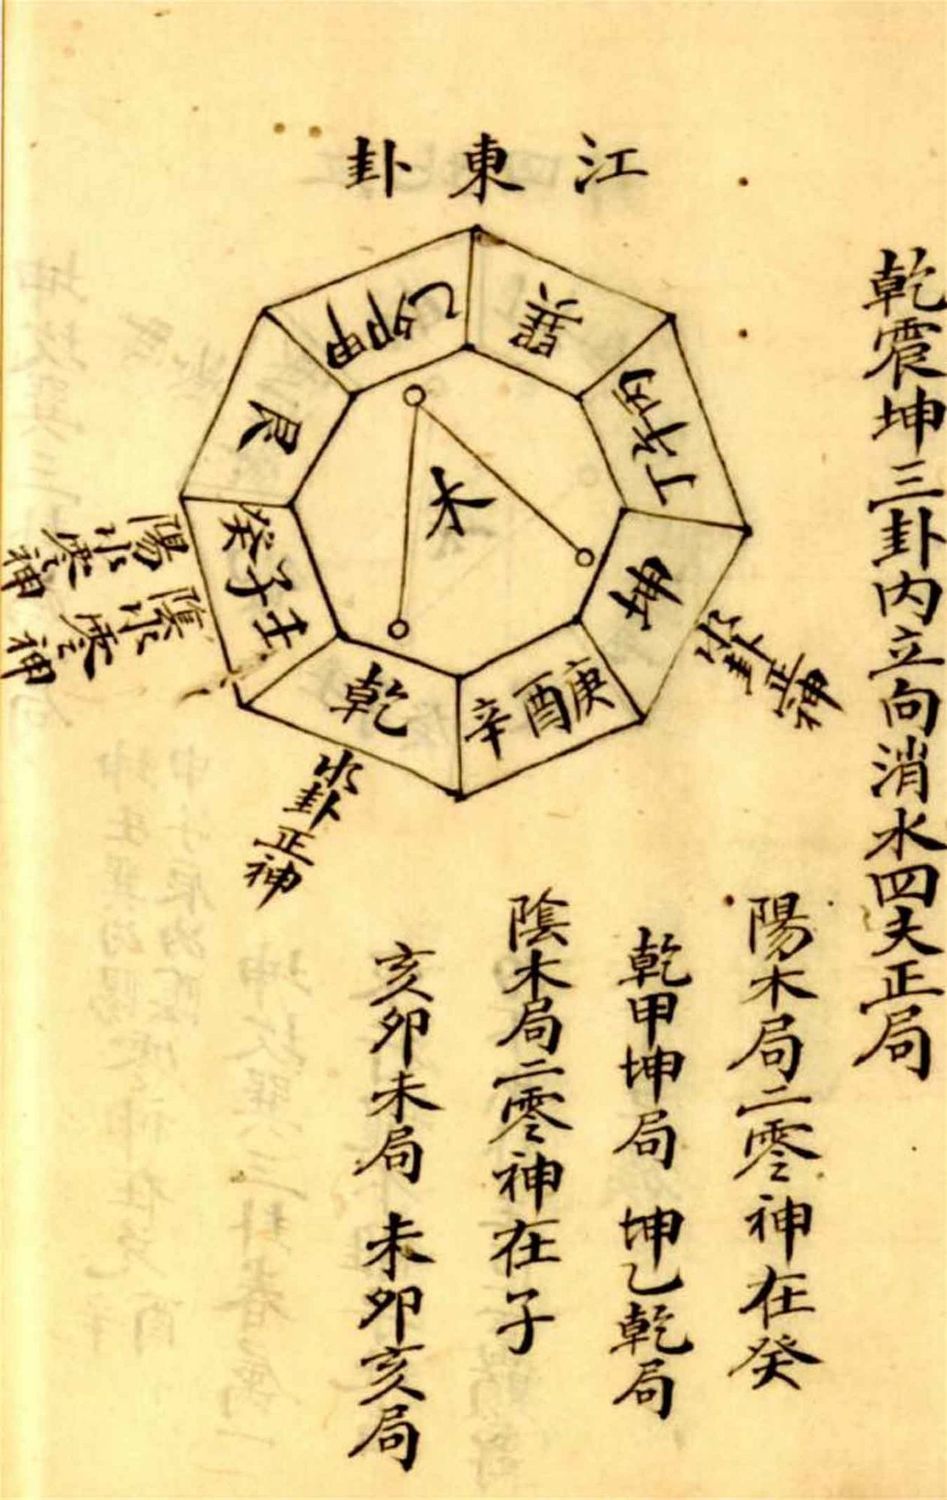 江東卦
乾震坤三卦内立向消水四大正局
巽
丙午丁
坤
庚酉辛
乾
壬子癸
艮
甲卯乙
木
水卦正神
水卦正神
陰水零神
陽水零神
陽木局二零神在癸
乾甲坤局 坤乙乾局
陰木局二零神在子
亥卯未局 未卯亥局